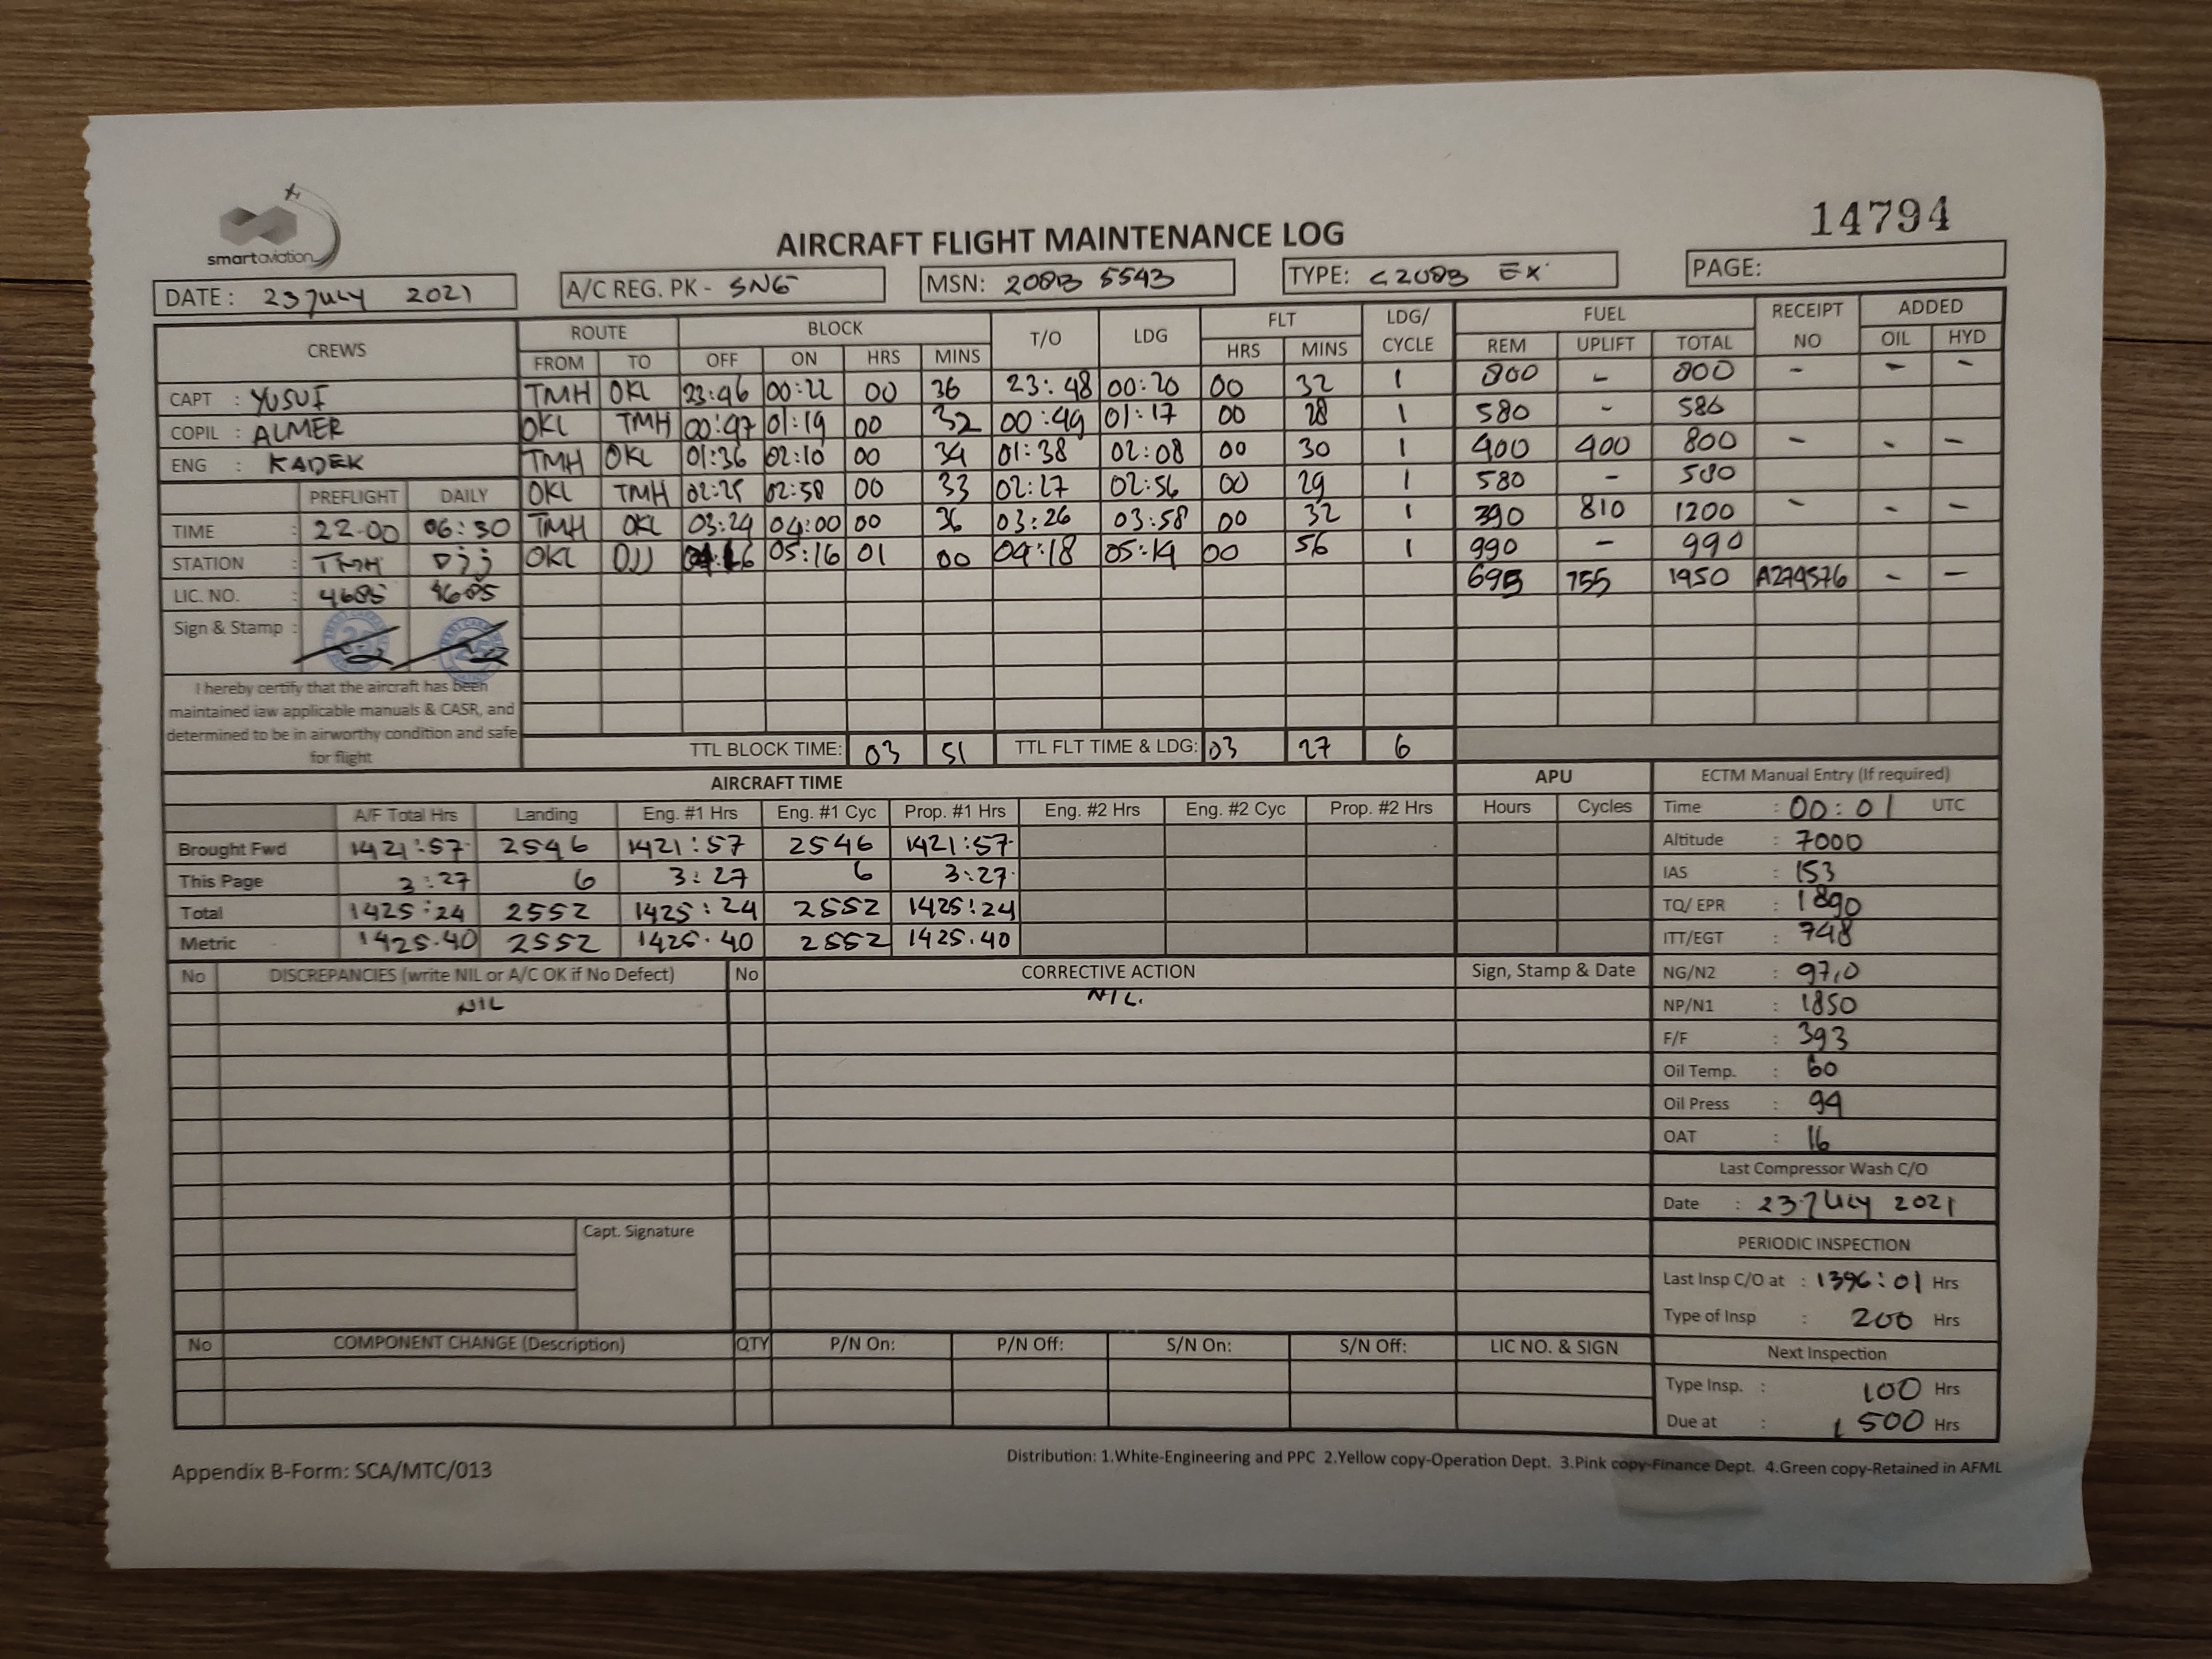 smartaviation
AIRCRAFT FLIGHT MAINTENANCE LOG
14794
DATE: 23 July 2021 A/C REG. PK - SNG MSN: 208B 5543 TYPE: C208B EX PAGE:
CREWS ROUTE BLOCK T/O LDG FLT LDG/ CYCLE FUEL RECEIPT NO ADDED
FROM TO OFF ON HRS MINS HRS MINS REM UPLIFT TOTAL OIL HYD
CAPT : YUSUF TMH OKL 23:46 00:22 00 36 23:48 00:20 00 32 1 800 - 800 - - -
COPIL : ALMER OKL TMH 00:47 01:19 00 32 00:49 01:17 00 28 1 580 - 580
ENG : KADEK TMH OKL 01:36 02:10 00 34 01:38 02:08 00 30 1 400 400 800 - - -
PREFLIGHT DAILY OKL TMH 02:25 02:58 00 33 02:27 02:56 00 29 1 580 - 580
TIME : 22-00 06:30 TMH OKL 03:24 04:00 00 36 03:26 03:58 00 32 1 390 810 1200 - - -
STATION : TMH Djj OKL DJJ 05:16 01 00 04:18 05:14 00 56 1 990 - 990
LIC. NO. : 4685 4685 695 755 1950 A274576 - -
Sign & Stamp :
I hereby certify that the aircraft has been
maintained iaw applicable manuals & CASR, and
determined to be in airworthy condition and safe
for flight
TTL BLOCK TIME: 03 51 TTL FLT TIME & LDG: 03 27 6
AIRCRAFT TIME APU ECTM Manual Entry (If required)
A/F Total Hrs Landing Eng. #1 Hrs Eng. #1 Cyc Prop. #1 Hrs Eng. #2 Hrs Eng. #2 Cyc Prop. #2 Hrs Hours Cycles Time : 00:01 UTC
Brought Fwd 1421:57 2546 1421:57 2546 1421:57 Altitude : 7000
This Page 3:27 6 3:27 6 3:27 IAS : 153
Total 1425:24 2552 1425:24 2552 1425:24 TQ/ EPR : 1890
Metric 1425.40 2552 1425.40 2552 1425.40 ITT/EGT : 748
No DISCREPANCIES (write NIL or A/C OK if No Defect) No CORRECTIVE ACTION Sign, Stamp & Date NG/N2 : 97,0
NIL NIL. NP/N1 : 1850
F/F : 393
Oil Temp. : 60
Oil Press : 94
OAT : 16
Last Compressor Wash C/O
Date : 23 July 2021
Capt. Signature
PERIODIC INSPECTION
Last Insp C/O at : 1396:01 Hrs
Type of Insp : 200 Hrs
No COMPONENT CHANGE (Description) QTY P/N On: P/N Off: S/N On: S/N Off: LIC NO. & SIGN Next Inspection
Type Insp. : 100 Hrs
Due at : 1500 Hrs
Appendix B-Form: SCA/MTC/013
Distribution: 1.White-Engineering and PPC 2.Yellow copy-Operation Dept. 3.Pink copy-Finance Dept. 4.Green copy-Retained in AFML